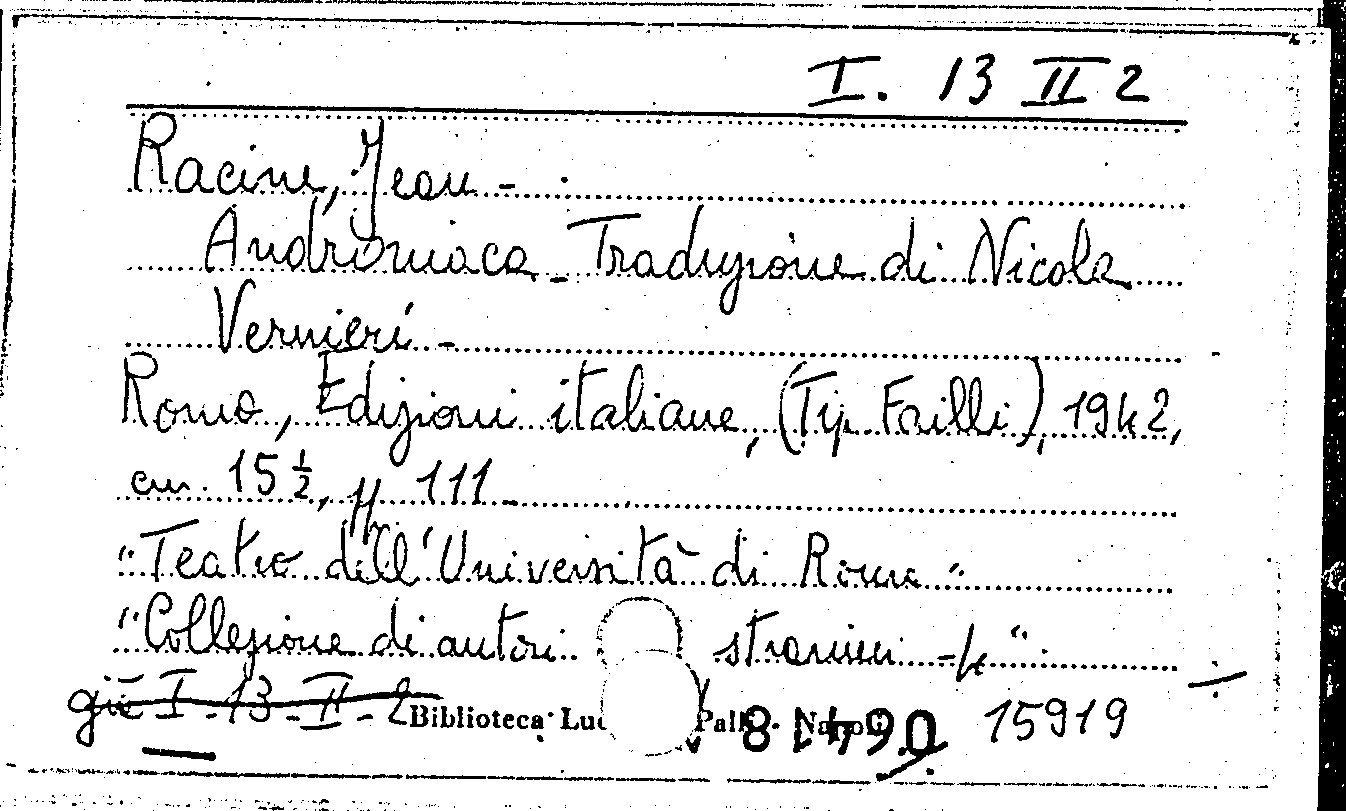 I. 13 II 2
Racine, Jean -
Andromaca - Traduzione di Nicola
Vernieri -
Roma, Edizioni italiane, (Tip. Failli), 1942,
cm. 15 ½, pp 111 -
"Teatro dell'Università di Roma"
"Collezione di autori stranieri - 4"
già I - 13 - II - 2
Biblioteca Luc Palli - Napoli 15919